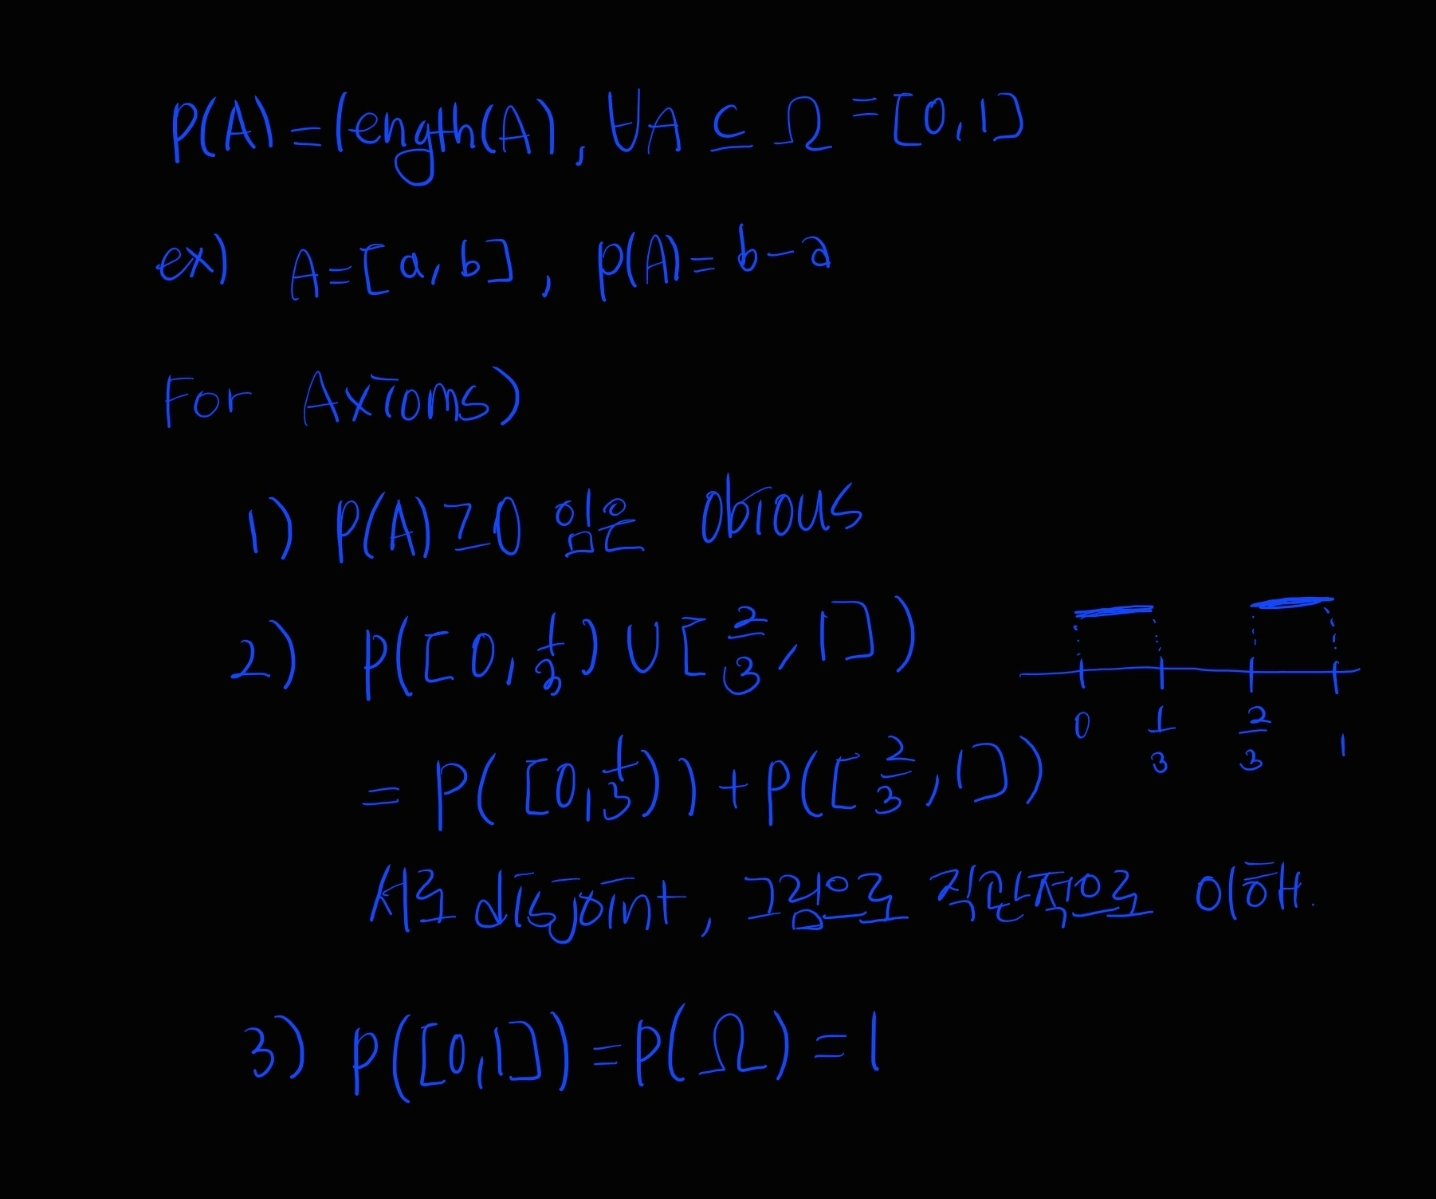 P(A) = length(A), ∀A ⊆ Ω = [0, 1]
ex) A = [a, b], P(A) = b - a
For Axioms)
1) P(A) ≥ 0 임은 obious
2) P([0, 1/3) ∪ [2/3, 1])
= P([0, 1/3)) + P([2/3, 1])
0 1/3 2/3 1
서로 disjoint, 그림으로 직관적으로 이해.
3) P([0, 1]) = P(Ω) = 1